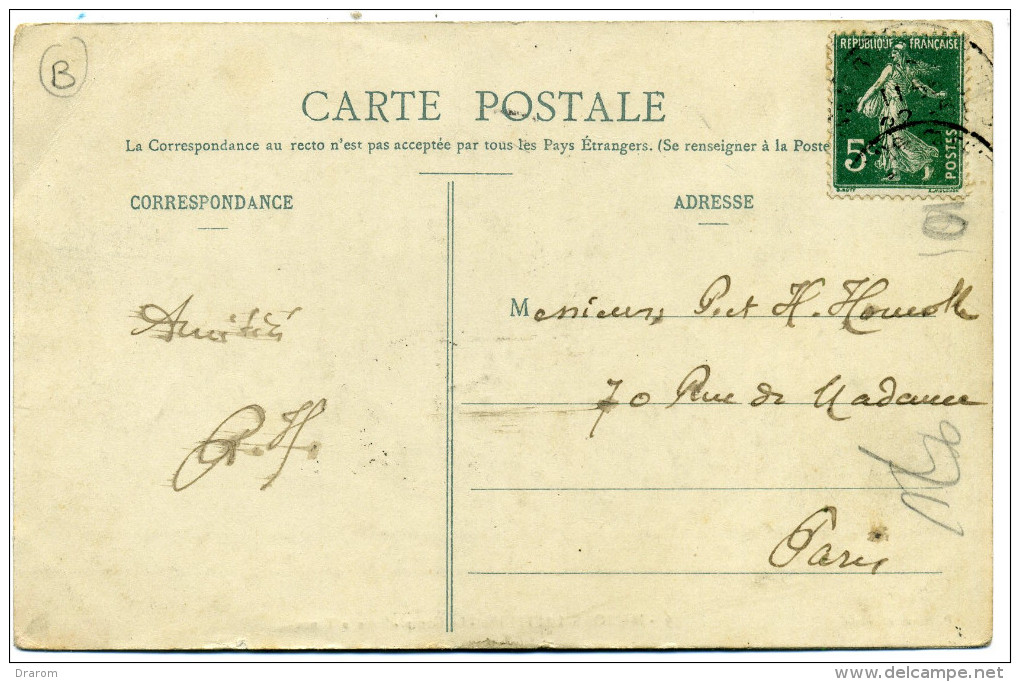 B
RÉPUBLIQUE FRANÇAISE
5c
POSTES
CARTE POSTALE
La Correspondance au recto n'est pas acceptée par tous les Pays Étrangers. (Se renseigner à la Poste
CORRESPONDANCE
ADRESSE
Amitiés
Messieurs P. et H.
70 Rue de Madame
Paris
Drarom
www.delcampe.net